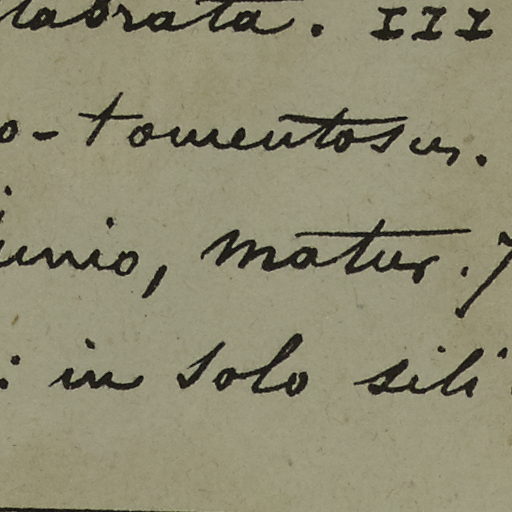 labrata. III
o-tomentosus.
junio, matur. J
: in solo sili